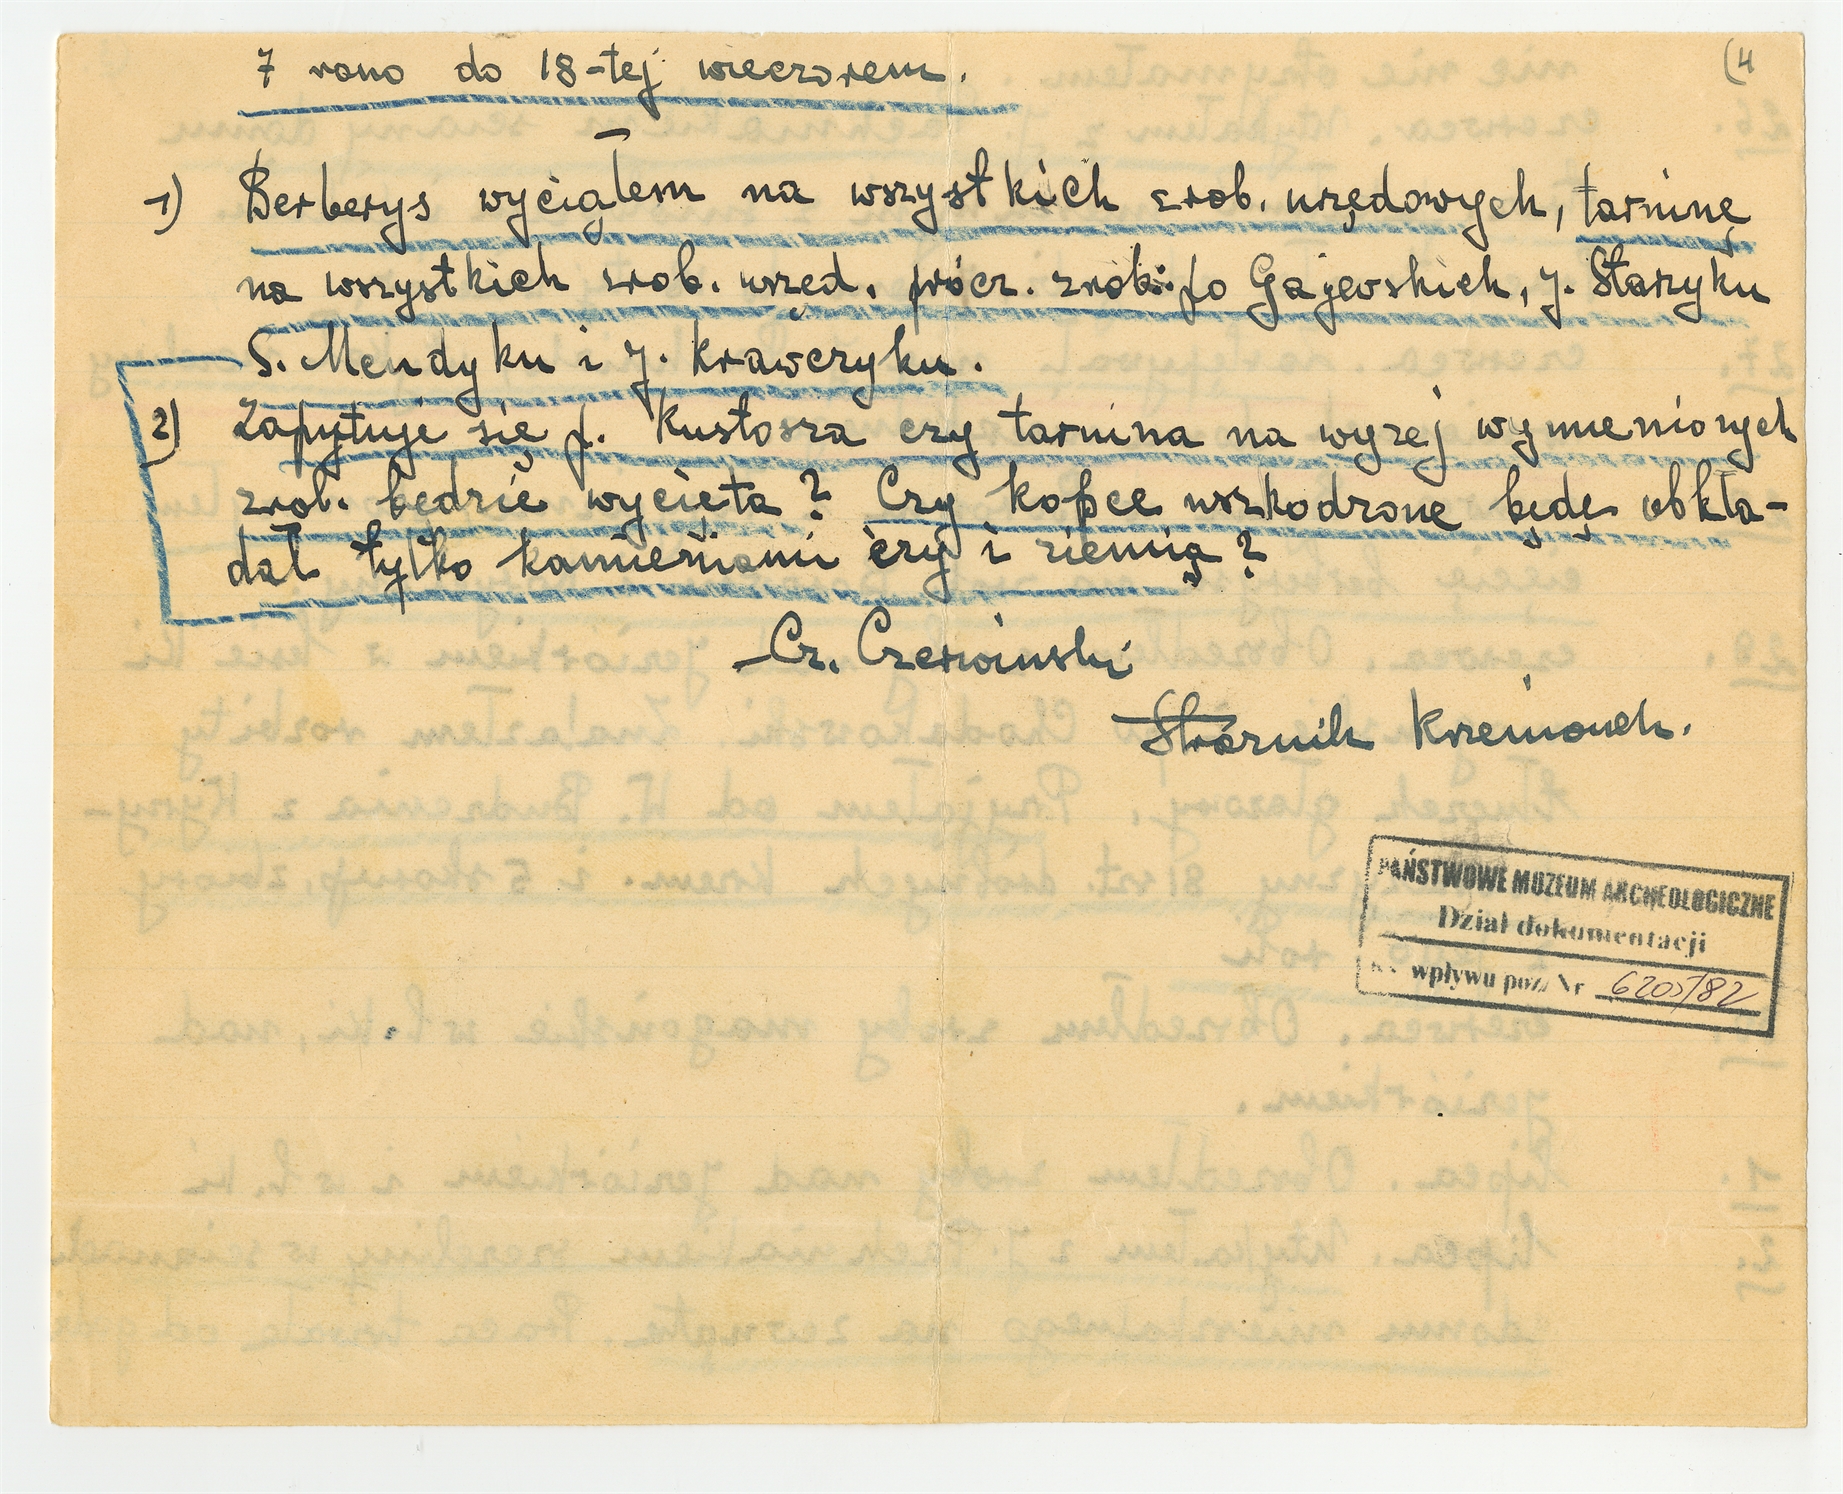 (4
7 rano do 18-tej wieczorem.
1) Berberys wyciąłem na wszystkich zrob. urzędowych, tarninę
na wszystkich zrob. urzęd. prócz. zrob: po Gajewskich, J. Stazyku
S. Mendyku i J. Krawczyku.
2) Zapytuje się p. Kustosza czy tarnina na wyzej wymienionych
zrob. będzie wycięta? Czy kopce uszkodzone będę obkła-
dał tylko kamieniami czy i ziemią?
Cz. Czerwinski
Strażnik Krzemionek.
PAŃSTWOWE MUZEUM ARCHEOLOGICZNE
Dział dokumentacji
wpływu poz. Nr 6205/82